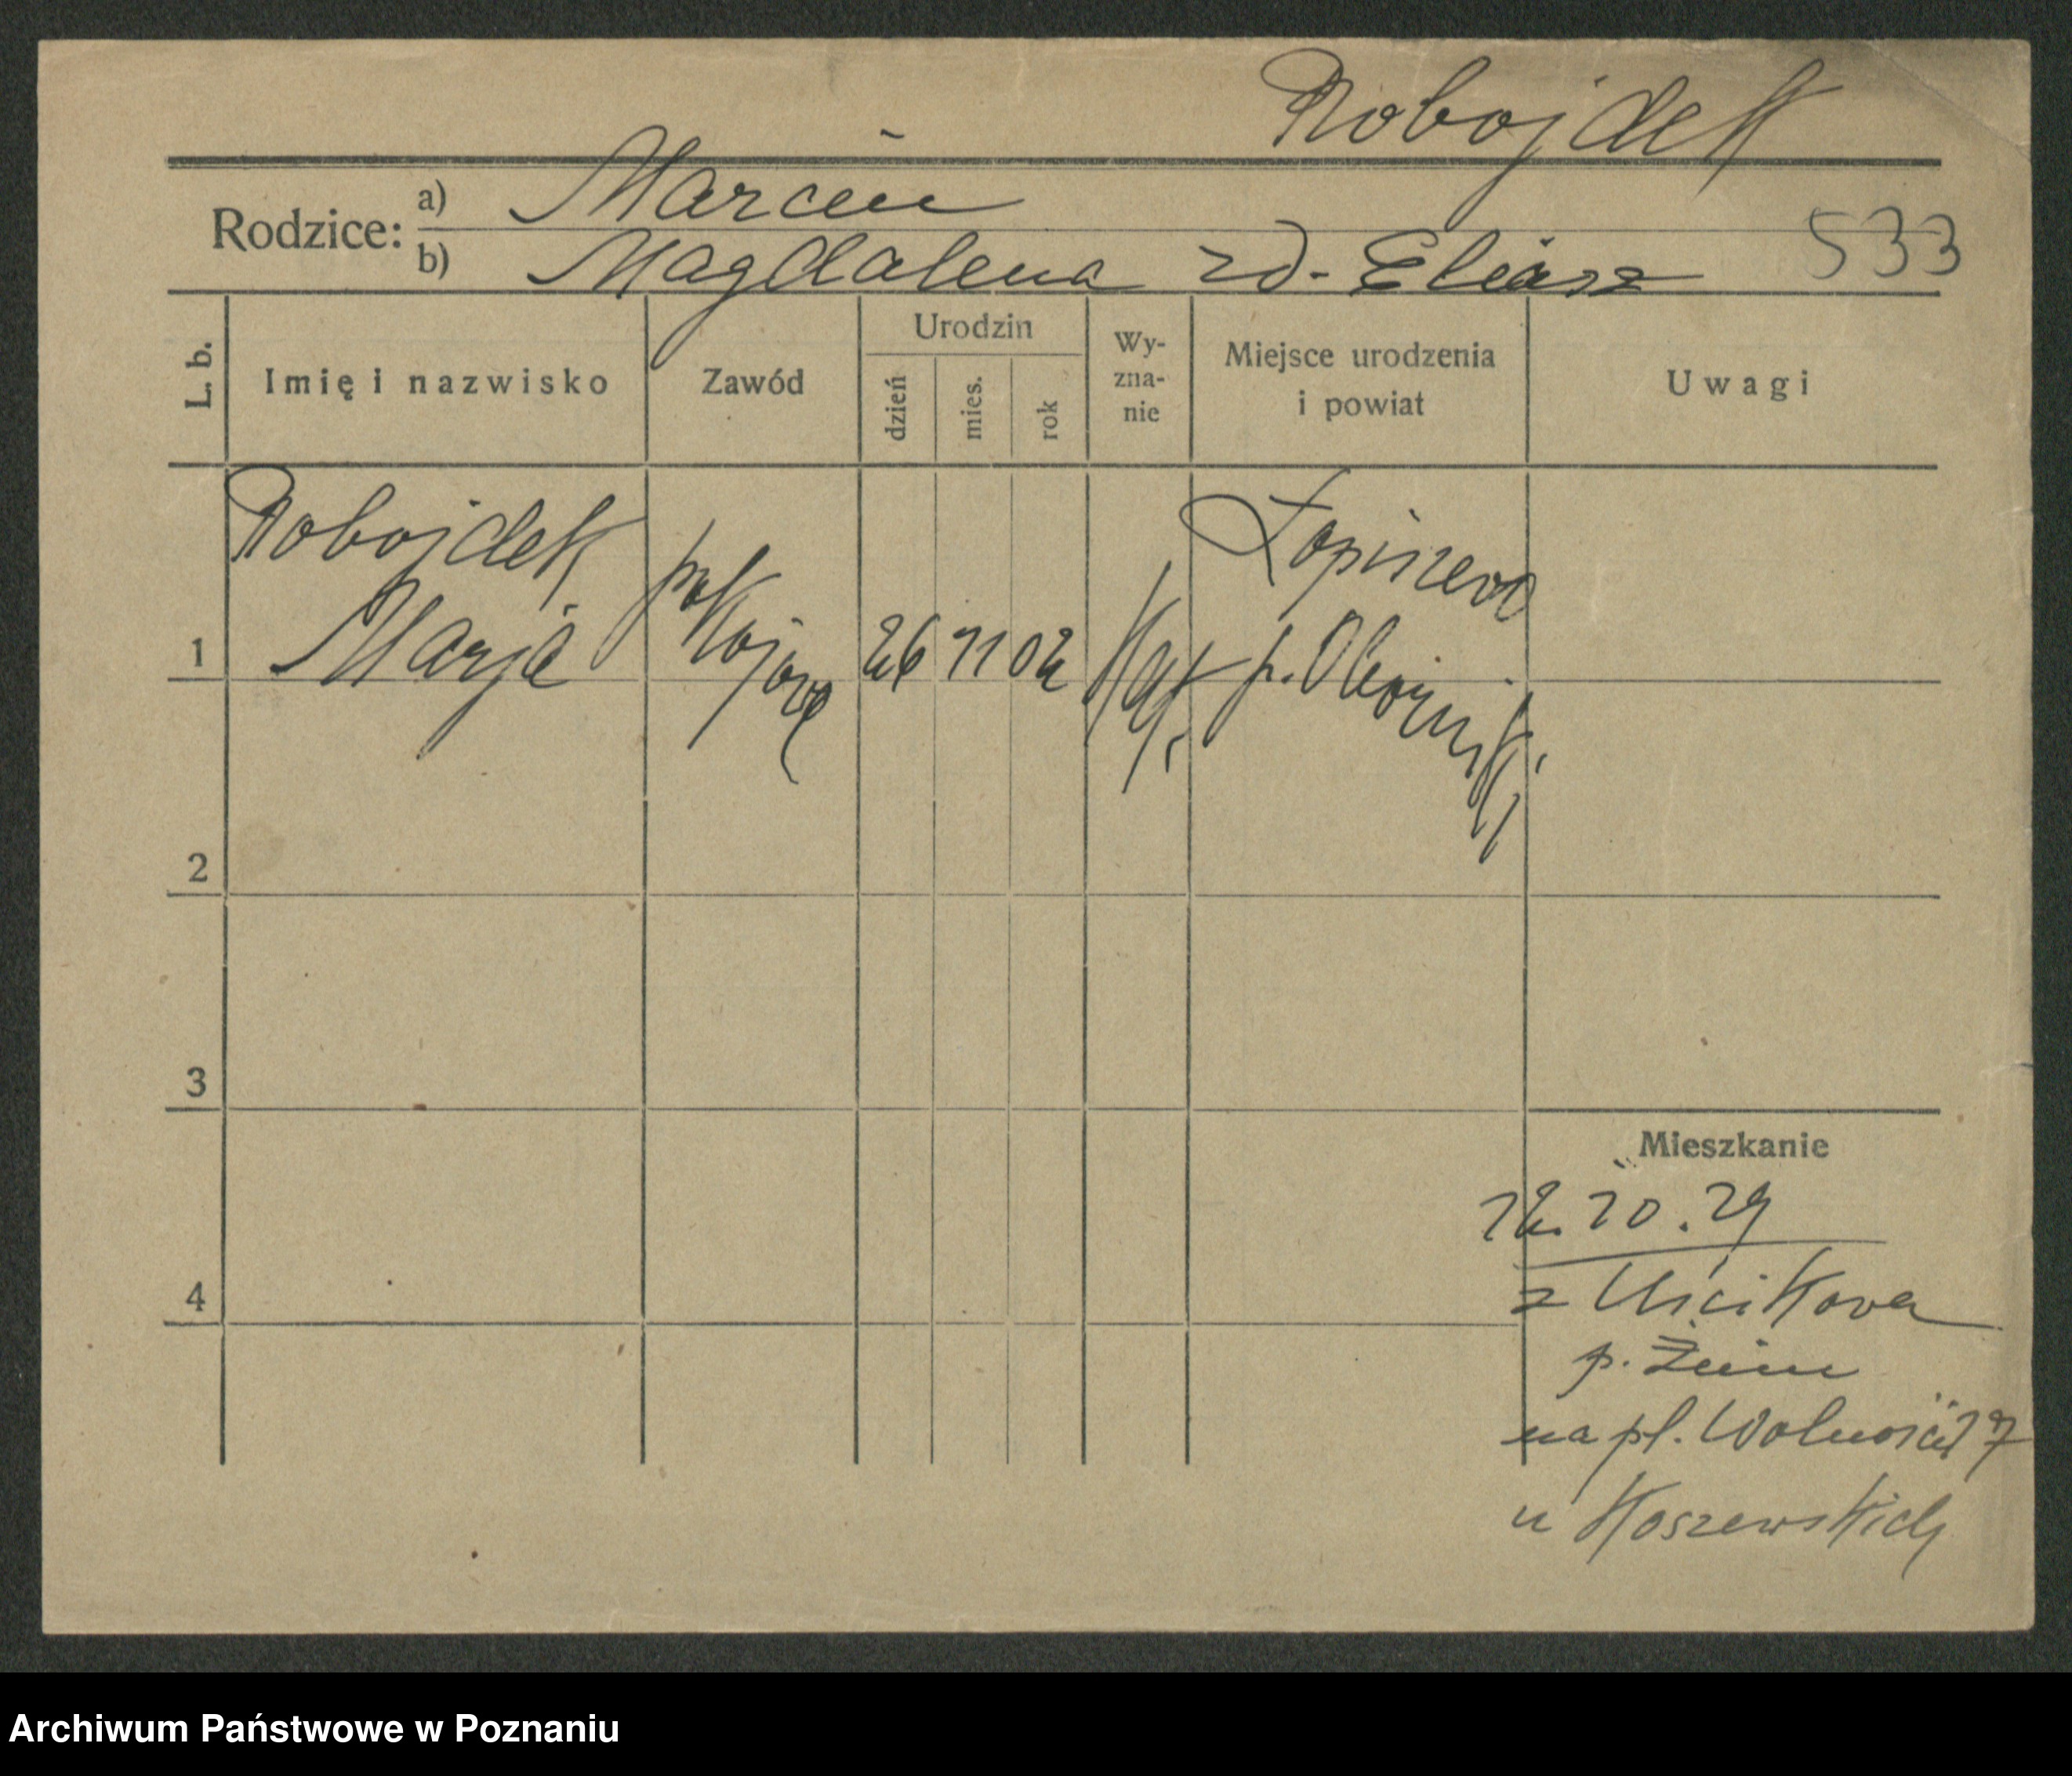 Robojdek
Rodzice: a) Marcin
b) Magdalena zd. Eliasz 533
L. b.
Imię i nazwisko
Zawód
Urodzin
dzień
mies.
rok
Wy-
zna-
nie
Miejsce urodzenia
i powiat
Uwagi
Robojdek
Marja
pokojowa
26 11 02
kat.
Łopiszewo
p. Obornicki
1
2
3
4
Mieszkanie
12. 10. 29
z Uścikowa
p. Żnin
na pl. Wolności 17
u Koszewskich
Archiwum Państwowe w Poznaniu